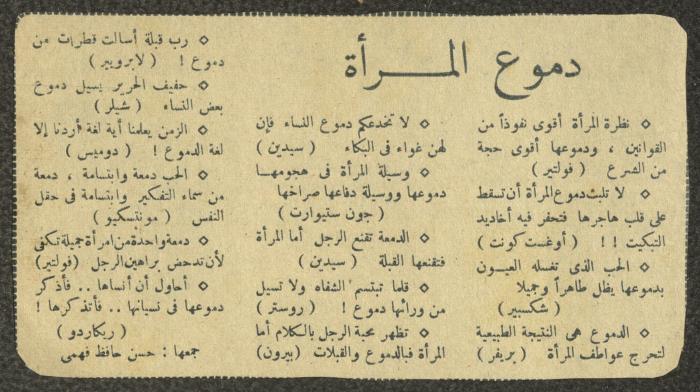 دموع المـــرأة
◊ نظرة المرأة أقوى نفوذاً من
القوانين ، ودموعها أقوى حجة
من الشرع ( فولتير )
◊ لا تلبث دموع المرأة أن تسقط
على قلب هاجرها فتحفر فيه أخاديد
التبكيت !! ( أوغست كونت )
◊ الحب الذى تغسله العيــون
بدموعها يظل طاهراً وجميلا
( شكسبير )
◊ الدموع هى النتيجة الطبيعية
لتحرج عواطف المرأة ( بريفر )
◊ لا تخدعكم دموع النساء فإن
لهن غواء فى البكاء ( سيدين )
◊ وسيلة المرأة فى هجومهـا
دموعها ووسيلة دفاعها صراخها
( جون ستيوارت )
◊ الدمعة تقنع الرجل أما المرأة
فتقنعها القبلة ( سيدين )
◊ قلما تبتسم الشفاه ولا تسيل
من ورائها دموع ! ( روستر )
◊ تظهر محبة الرجل بالكلام أما
المرأة فبالدموع والقبلات ( بيرون )
◊ رب قبلة أسالت قطرات من
دموع ! ( لابرويير )
◊ حفيف الحرير يسيل دموع
بعض النساء ( شيلر )
◊ الزمن يعلمنا أية لغة أردنا إلا
لغة الدموع ! ( دوميس )
◊ الحب دمعة وابتسامة ، دمعة
من سماء التفكير وابتسامة فى حقل
النفس ( مونتسكيو )
◊ دمعة واحدة من امرأة جميلة تكفى
لأن تدحض براهين الرجل ( فولتير )
◊ أحاول أن أنساها .. فأذكر
دموعها فى نسيانها .. فأتذكرها !
( ريكاردو )
جمعها : حسن حافظ فهمى